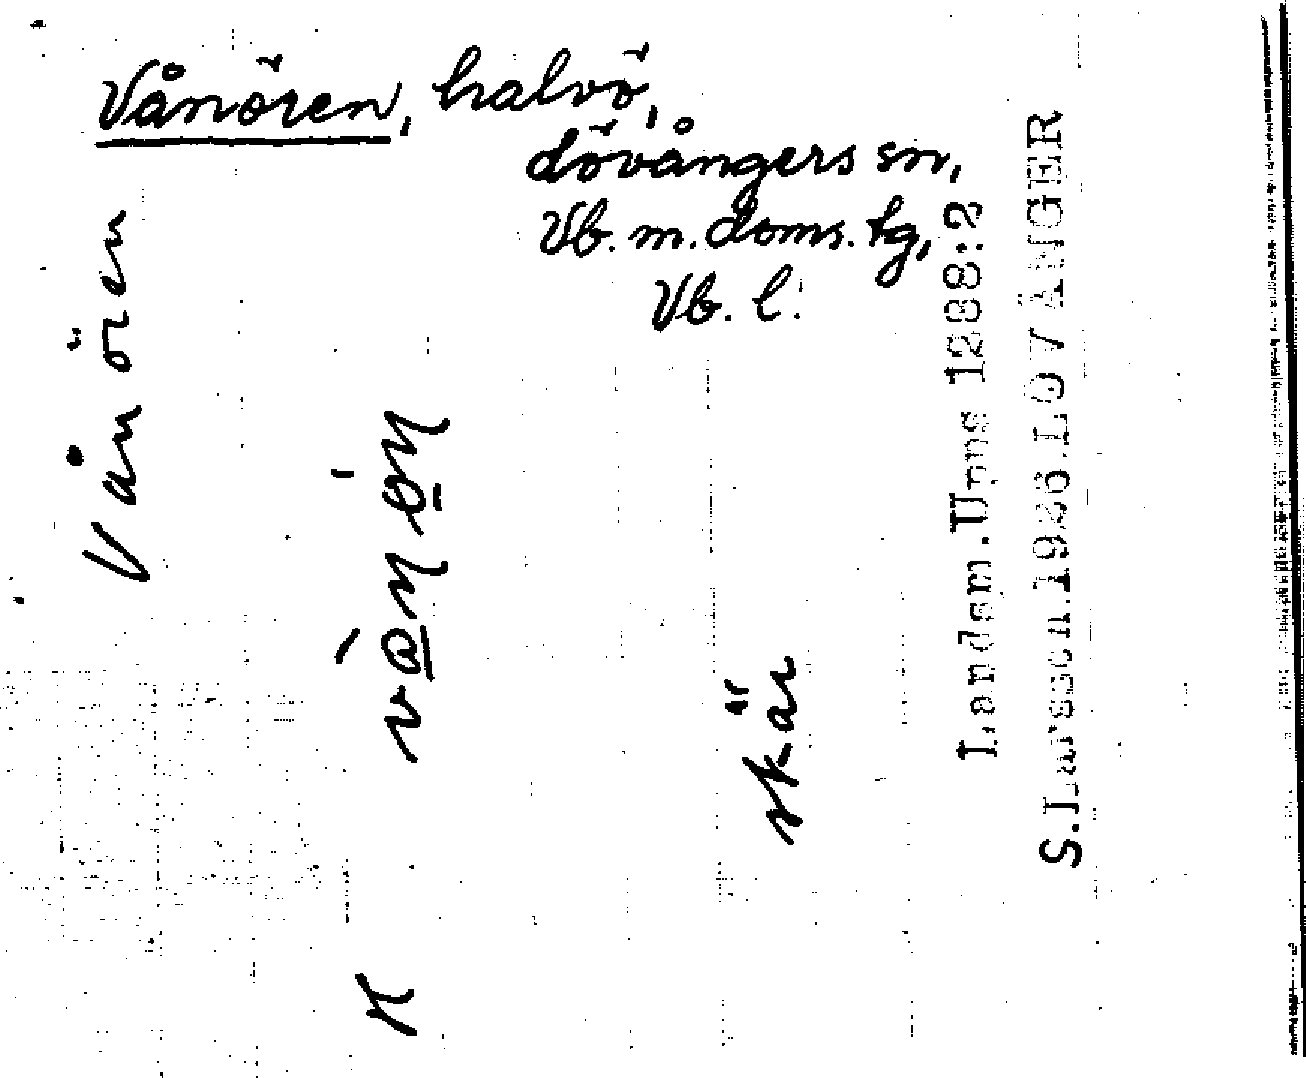 Vånören, halvö,
Lövångers sn,
Vb. m. doms. tg,
Vb. l.
Vånören
skär
Landsm. Upps 1288:2
S. Larsson. 1926. LÖVÅNGER
K